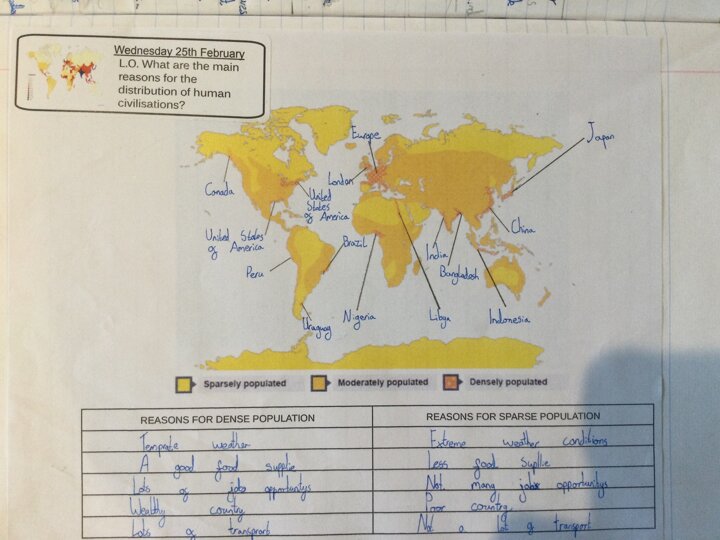 Wednesday 25th February
L.O. What are the main
reasons for the
distribution of human
civilisations?
Europe
Japan
London
Canada
United
States
of America
United States
of America
Brazil
China
India
Peru
Bangladesh
Uraguay
Nigeria
Libya
Indonesia
Sparsely populated
Moderately populated
Densely populated
REASONS FOR DENSE POPULATION
REASONS FOR SPARSE POPULATION
Temprate weather
Extreme weather conditions
A good food supplie
Less food supllie
Lots of job opportunitys
Not many jobs opportunitys
Wealthy country
Poor country
Lots of transport
Not a lot of transport